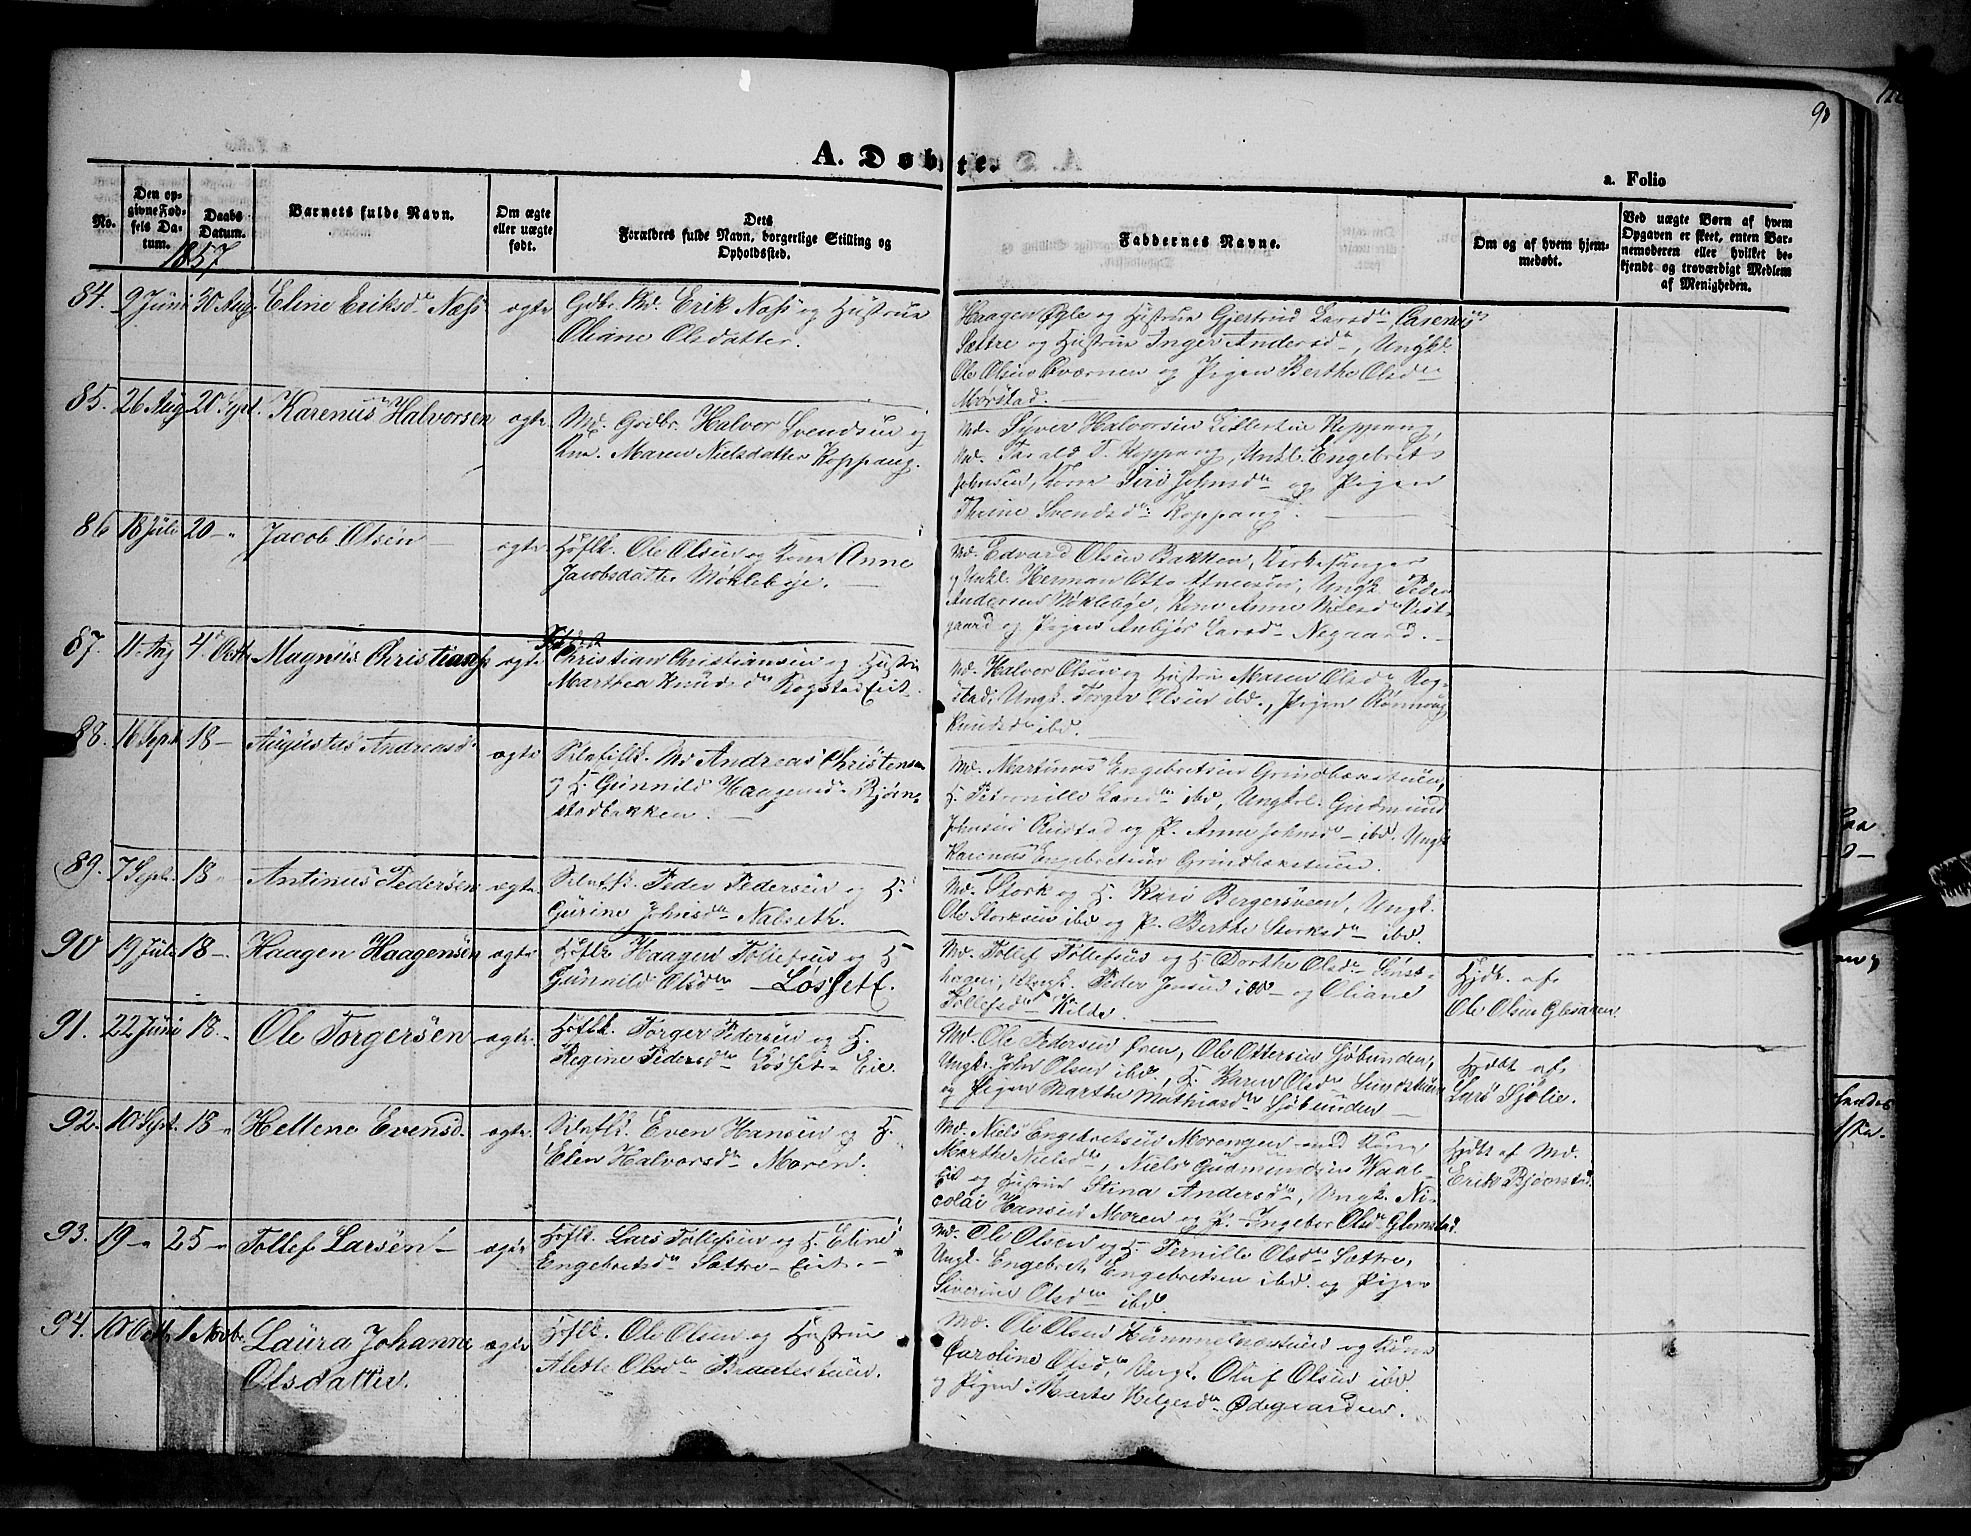 90
A. Døbte.
a. Folio
No.
Den op-
givne Fød-
sels Da-
tum.
Daabs
Datum.
Barnets fulde Navn.
Om ægte
eller uægte
født.
Dets
Forældres fulde Navn, borgerlige Stilling og
Opholdssted.
Faddernes Navne.
Om og af hvem hjem-
medøbt.
Ved uægte Børn af hvem
Opgaven er skeet, enten Bar-
nemoderen eller hvilket be-
kjendt og troværdigt Medlem
af Menigheden.
1857
84. 9 Juni 30 Aug. Eline Eriksd. Næss ægte Gdbr. Md. Erik Næss og Hustrue
Oliane Olsdatter.
Haagen Øgle og Hustrue Gjertrud Larsd.
Sættre og Hustrue Inger Andersd., Ungk.
Ole Olsen Qværnen og Pigen Berthe Olsd.
Morstad.
85. 26 Aug. 20 Sept. Karenus Halvorsen ægte Md. Grdbr. Halvor Svendsen og
Kne. Maren Nielsdatter Koppang.
Md. Syver Halvorsen Koppang,
Md. Tarald T. Koppang, Unkl. Engebret
Johnsen, Kone Siri Johnsd. og Pigen
Thrine Svendsd. Koppang.
86 18 Juli 20 - " Jacob Olsen ægte Hsflk. Ole Olsen og Kone Anne
Jacobsdatter Møklebye.
Md. Edvard Olsen Bakken, Kirkesanger
og Unkl. Herman Otto, Ungk. Peder
Andersen Møklebye, Kone Anne Nilsd. Vest-
gaard og Pigen Anbjør Larsd. Negaard.
87. 11. Aug 4. Octr. Magnus Christians ægte Christian Christiansen og Hustru
Marthea Knudsd. Rogstad Eiet.
Md. Halvor Olsen og Hustrue Maren Olsd. Rog-
stad, Ungk. Torger Olsen ibd., Pigen Rønnoug
Knudsd. ibd.
88. 16 Sept. 18 - Augusta Andreasd. ægte Selvfflk. Md Andreas Christensen
og H. Gunnild Haagensd. Bjørn-
stadbakken.
Md. Martinus Engebretsen Grindbækstuen,
H. Petronille Larsd. ibd, Ungkl. Gudmund
Johnsen Rustad og P. Anne Johnsd. ibd. Ungk.
Karenus Engebretsen Grindbækstuen.
89. 7 Sept. 18 " Antinus Pedersen ægte Selvflk. Peder Pedersen og H.
Gurine Johnsd. Nabseth.
Md. Stork og H. Kari Bergersveen, Ungk.
Ole Storksen ibd og P. Berthe Storksd. ibd.
90 19 Juli 18 - Haagen Haagensen ægte Hsflk Haagen Tollefsen og H
Gunnild Olsd. - Løssett.
Md. Tollef Tollefsen og H Dorthe Olsd.
hagen, Ungk. Peder Jensen ibd og Oliane
Tollefsd. Kilde.
Hjdt. af
Ole Olsen Glesaaen
91. 22 Juni 18. " Ole Torgersen ægte Hsflk. Torger Pedersen og H.
Regine Pedersd. Løsset-Eie.
Md. Ole Pedersen Øren, Ole Ottersen Sjøbunden,
Ungk. John Olsen ibd., H. Karen Olsd. Sundstuen
og Pigen Marthe Mathiasd. Sjøbunden
Hjdbt af
Lars Sjølie.
92. 10 Sept. 18 - " Hellene Evensd. ægte Selvflk. Even Hansen og H.
Elen Halvorsd. Moren.
Md. Niels Engebretsen Morengen med Kone
Marthe Nielsd., Niels Gudmundsen
Eie og Hustrue Stina Andersd., Ungk. Ni-
colai Hansen Moren og P. Ingebor Olsd. Glomstad.
Hjdt af Md.
Erik Bjørnstad.
93. 19 - " 25 - " Tollef Larsen ægte Hsflk. Lars Tollefsen og H. Eline
Engebretsd. Sættre-Eiet.
Md. Ole Olsen og H. Pernille Olsd. Sættre,
Ungk. Engebret Engebretsen ibd. og Pigen
Siverine Olsd. ibd.
94. 10 Octb. 1 Novbr. Laura Johanne ægte Hsflk. Ole Olsen og Hustrue
Olsdatter. Alette Olsd. Braatestuen.
Md. Ole Olsen Hummelnæstuen og Kone
Caroline Olsd., Ungk. Oluf Olsen ibd.
og Pigen Marte Helgesd. Ødegaarden.